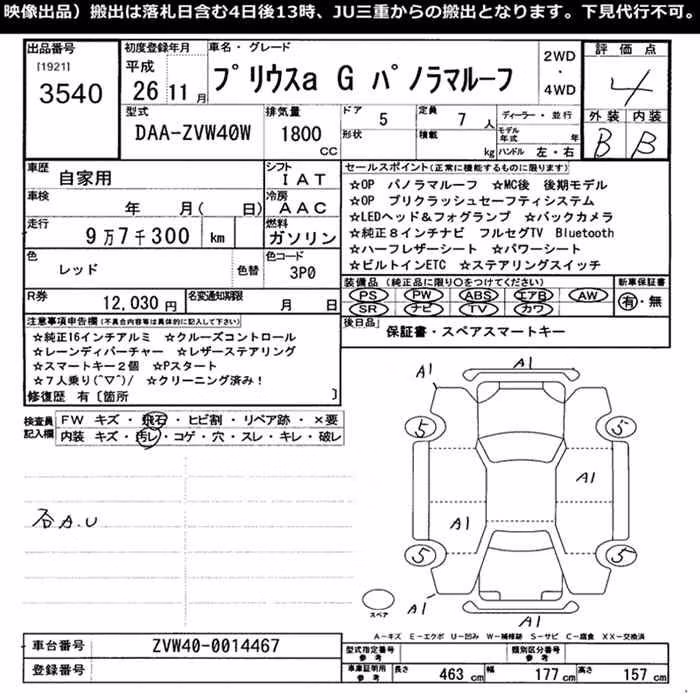 映像出品）搬出は落札日含む4日後13時、JU三重からの搬出となります。下見代行不可。
出品番号
[1921]
3540
初度登録年月
平成
26 11 月
車名・グレード
プリウスa G パノラマルーフ
2WD
・
4WD
評価点
4
型式
DAA-ZVW40W
排気量
1800
CC
ドア
5
形状
定員
7 人
積載
kg
ディーラー・並行
モデル年式 年
ハンドル 左・右
外装 内装
B B
車歴
自家用
シフト
IAT
車検
年 月( 日)
冷房
AAC
走行
9万7千300 km
燃料
ガソリン
色
レッド
色替
色コード
3P0
R券
12,030円
名変通知期限
月 日
セールスポイント(正常に機能するものに限ります)
☆OP パノラマルーフ ☆MC後 後期モデル
☆OP プリクラッシュセーフティシステム
☆LEDヘッド＆フォグランプ ☆バックカメラ
☆純正8インチナビ フルセグTV Bluetooth
☆ハーフレザーシート ☆パワーシート
☆ビルトインETC ☆ステアリングスイッチ
装備品(純正品に限り○をつけてください)
PS PW ABS エアB AW
SR ナビ TV カワ
新車保証書
有・無
後日品
保証書・スペアスマートキー
注意事項申告欄(不具合内容等は具体的に記入して下さい)
☆純正16インチアルミ ☆クルーズコントロール
☆レーンディパーチャー ☆レザーステアリング
☆スマートキー2個 ☆Pスタート
☆7人乗り(^▽^)/ ☆クリーニング済み！
修復歴 有〔箇所 〕
検査員
記入欄
FW キズ・飛石・ヒビ割・リペア跡・×要
内装 キズ・汚レ・コゲ・穴・スレ・キレ・破レ
A.U
A1
A1
5
5
A1
A1
5
5
A1
A1
スペア
A－キズ E－エクボ U－凹み W－補修跡 S－サビ C－腐食 XX－交換済
車台番号
ZVW40-0014467
登録番号
型式指定番号
参考
類別区分番号
参考
車庫証明用
参考
長さ 463 cm 幅 177 cm 高さ 157 cm